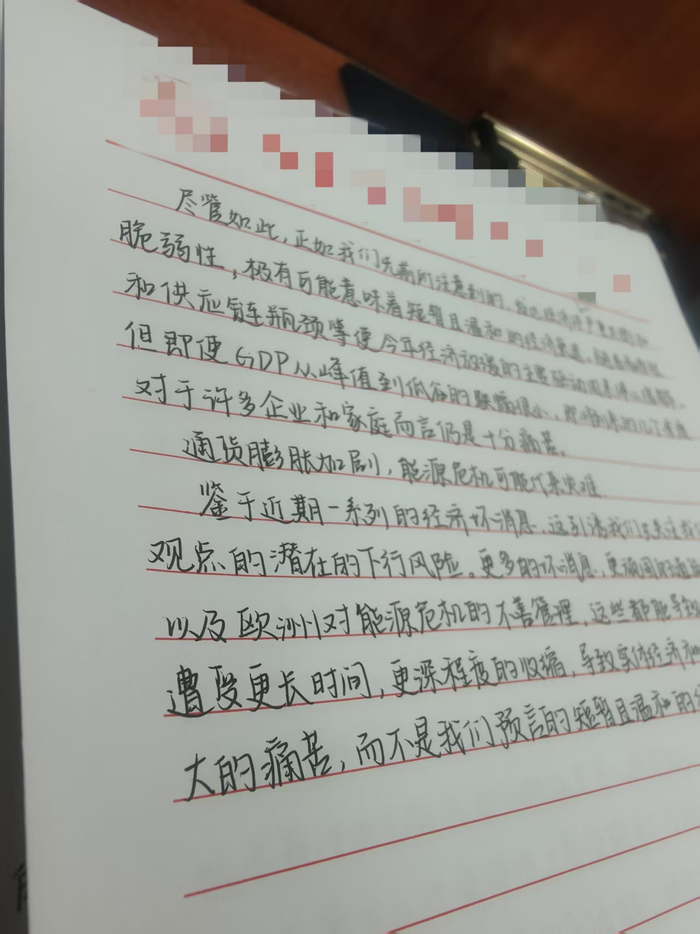 尽管如此，正如我们先前所注意到的，
脆弱性，极有可能意味着短暂且温和的经济衰退，
和供应链瓶颈等使今年经济放缓的主要驱动因素得以缓解，
但即使GDP从峰值到低谷的跌幅很小，
对于许多企业和家庭而言仍是十分痛苦。
通货膨胀加剧，能源危机可能代来灾难
鉴于近期一系列的经济坏消息，这引诱我们关注我们
观点的潜在的下行风险。更多的坏消息，更顽固的通胀
以及欧洲对能源危机的不善管理，这些都能导致
遭受更长时间，更深程度的收缩，导致实体经济和
大的痛苦，而不是我们预言的短暂且温和的